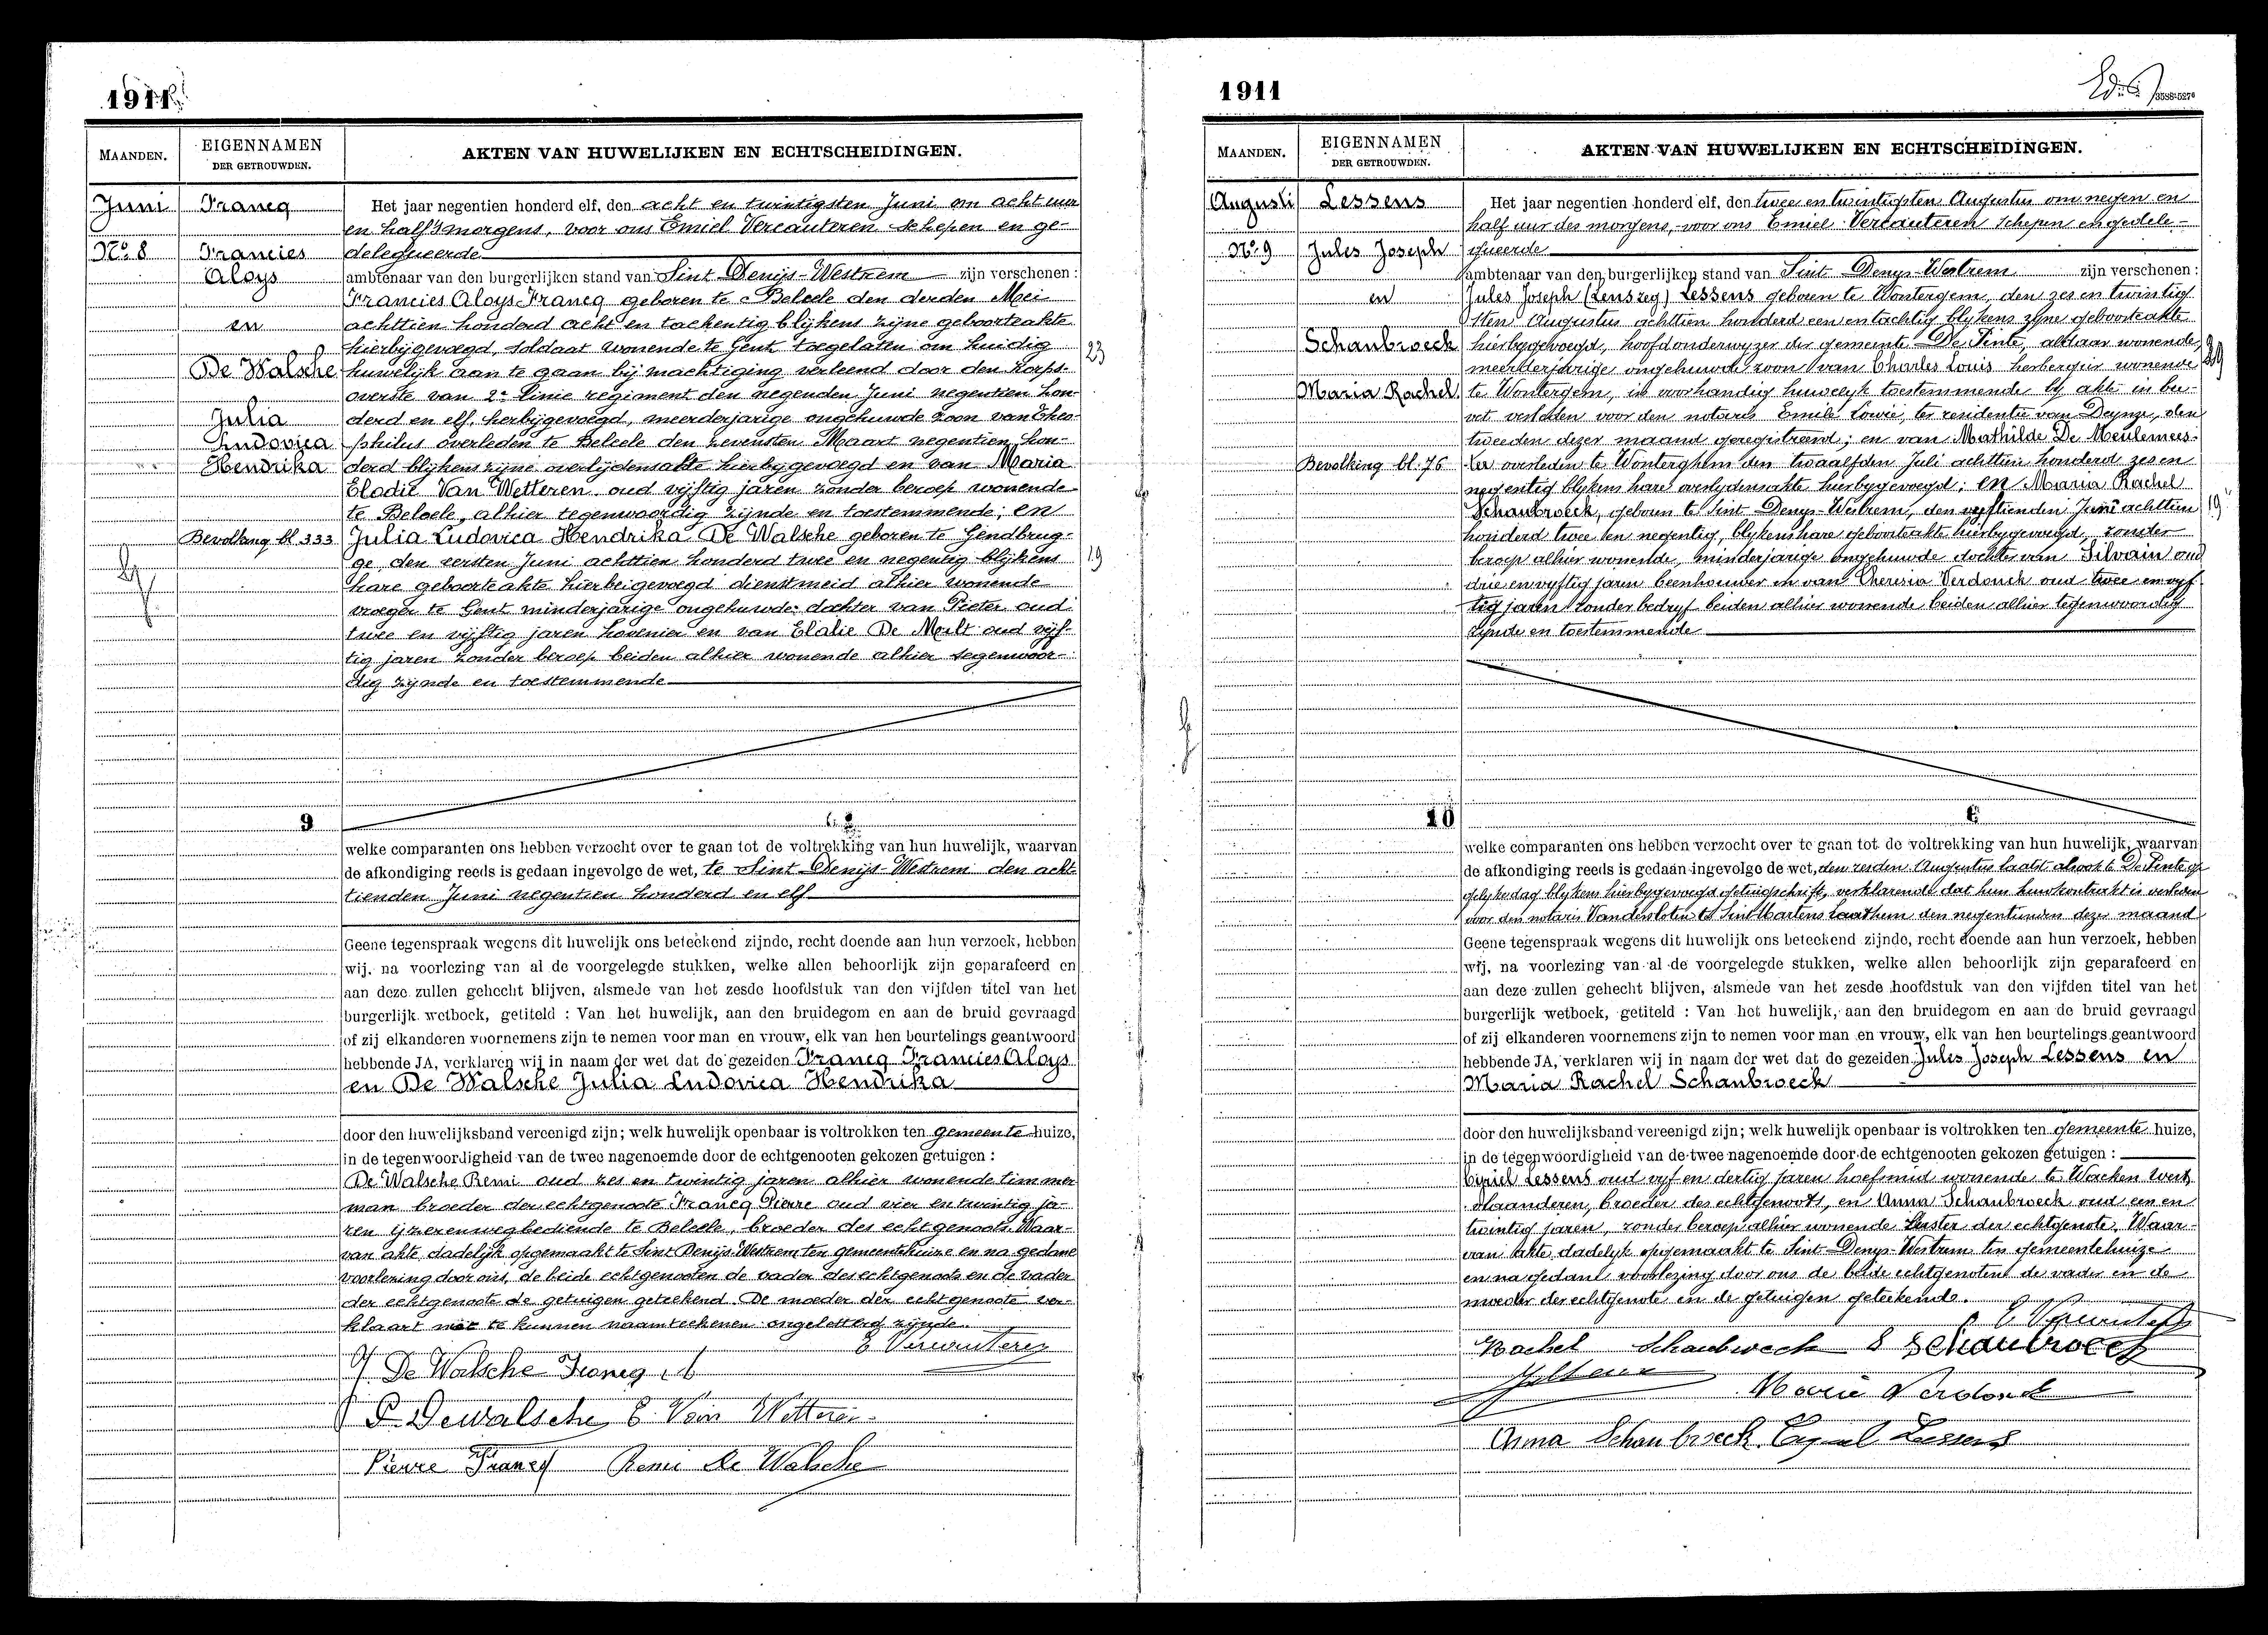 1911
MAANDEN.
EIGENNAMEN
DER GETROUWDEN.
AKTEN VAN HUWELIJKEN EN ECHTSCHEIDINGEN.
Juni
No. 8
Francq
Francies
Aloys
en
De Walsche
Julia
Ludovica
Hendrika
Bevolking bl 333
Het jaar negentien honderd elf, den acht en twintigsten Juni om acht uur
en half 's morgens, voor ons Emiel Vercauteren schepen en ge-
delegueerde
ambtenaar van den burgerlijken stand van Sint Denijs-Westrem zijn verschenen :
Francies Aloys Francq geboren te Belsele den derden Mei
achttien honderd acht en tachentig blijkens zijne geboorteakte
hierbijgevoegd, soldaat wonende te Gent toegelaten om huidig
23
huwelijk aan te gaan bij machtiging verleend door den Korps-
overste van 2e linie regiment den negenden Juni negentien hon-
derd en elf, hierbijgevoegd, meerderjarige ongehuwde zoon van Theo-
philus overleden te Belsele den zevensten Maart negentien hon-
derd blijkens zijne overlijdensakte hierbijgevoegd en van Maria
Elodie Van Wetteren oud vijftig jaren zonder beroep wonende
te Belsele, alhier tegenwoordig zijnde en toestemmende; en
Julia Ludovica Hendrika De Walsche geboren te Gendbrug-
ge den eersten Juni achttien honderd twee en negentig blijkens
19
hare geboorteakte hierbeigevoegd dienstmeid alhier wonende
vroeger te Gent minderjarige ongehuwde dochter van Pieter oud
twee en vijftig jaren hovenier en van Elalie De Mult oud vijf-
tig jaren zonder beroep beiden alhier wonende alhier tegenwoor-
dig zijnde en toestemmende
9
welke comparanten ons hebben verzocht over te gaan tot de voltrekking van hun huwelijk, waarvan
de afkondiging reeds is gedaan ingevolge de wet, te Sint Denijs-Westrem den acht
tienden Juni negentien honderd en elf
Geene tegenspraak wegens dit huwelijk ons beteekend zijnde, recht doende aan hun verzoek, hebben
wij, na voorlezing van al de voorgelegde stukken, welke allen behoorlijk zijn geparafeerd en
aan deze zullen gehecht blijven, alsmede van het zesde hoofdstuk van den vijfden titel van het
burgerlijk wetboek, getiteld : Van het huwelijk, aan den bruidegom en aan de bruid gevraagd
of zij elkanderen voornemens zijn te nemen voor man en vrouw, elk van hen beurtelings geantwoord
hebbende JA, verklaren wij in naam der wet dat de gezeiden Francq Francies Aloys
en De Walsche Julia Ludovica Hendrika
door den huwelijksband vereenigd zijn; welk huwelijk openbaar is voltrokken ten gemeente huize,
in de tegenwoordigheid van de twee nagenoemde door de echtgenooten gekozen getuigen :
De Walsche Remi oud zes en twintig jaren alhier wonende timmer
man broeder der echtgenoote Francq Pierre oud vier en twintig ja-
ren ijzerenwegbediende te Belsele, broeder des echtgenoots. Waar-
van akte dadelijk opgemaakt te Sint Denijs Westrem ten gemeentehuize en na gedane
voorlezing door ons, de beide echtgenooten de vader des echtgenoots en de vader
der echtgenoote de getuigen geteekend. De moeder der echtgenoote ver-
klaart niet te kunnen naamteekenen ongeletterd zijnde.
E Vercauteren
J De Walsche Francq
P Dewalsche E Van Wetteren
Pierre Francq Remi de Walsche
1911
MAANDEN.
EIGENNAMEN
DER GETROUWDEN.
AKTEN VAN HUWELIJKEN EN ECHTSCHEIDINGEN.
Augusti
No. 9
Lessens
Jules Joseph
en
Schaubroeck
Maria Rachel
Bevolking bl. 76
Het jaar negentien honderd elf, den twee en twintigsten Augustus om negen en
half uur des morgens, voor ons Emiel Vercauteren schepen en gedele-
gueerde
ambtenaar van den burgerlijken stand van Sint Denys-Westrem zijn verschenen :
Jules Joseph (Lenszeg) Lessens geboren te Wontergem, den zes en twintig
sten Augustus achttien honderd een en tachtig blykens zyne geboorteakte
hierbygevoegd, hoofdonderwyzer der gemeente De Pinte, aldaar wonende,
meerderjarige ongehuwde zoon van Charles Louis herbergier wonende
29
te Wontergem, in voorhandig huwelyk toestemmende by akte in bre-
vet verleden voor den notaris Emile Lowie, ter residentie van Deynze, den
tweeden dezer maand geregistreerd; en van Mathilde De Meulemees-
ter overleden te Wonterghem den twaalfden Juli achttien honderd zes en
negentig blykens hare overlydensakte hierbygevoegd; en Maria Rachel
Schaubroeck, geboren te Sint Denys-Westrem, den vyftienden Juni achttien
19
honderd twee en negentig, blykens hare geboorteakte hierbygevoegd, zonder
beroep alhier wonende, minderjarige ongehuwde dochter van Silvain oud
drie en vyftig jaren beenhouwer en van Theresia Verdonck oud twee en vyf
tig jaren zonder bedryf beiden alhier wonende beiden alhier tegenwoordig
zynde en toestemmende
10
welke comparanten ons hebben verzocht over te gaan tot de voltrekking van hun huwelijk, waarvan
de afkondiging reeds is gedaan ingevolge de wet, den zesden Augustus laatst alsook te De Pinte op
gelyken dag blykens hierbygevoegd getuigschrift, verklarende dat hun huwkontrakt is verleden
voor den notaris Vandersloten te Sint Martens Laathem den negentienden dezer maand
Geene tegenspraak wegens dit huwelijk ons beteekend zijnde, recht doende aan hun verzoek, hebben
wij, na voorlezing van al de voorgelegde stukken, welke allen behoorlijk zijn geparafeerd en
aan deze zullen gehecht blijven, alsmede van het zesde hoofdstuk van den vijfden titel van het
burgerlijk wetboek, getiteld : Van het huwelijk, aan den bruidegom en aan de bruid gevraagd
of zij elkanderen voornemens zijn te nemen voor man en vrouw, elk van hen beurtelings geantwoord
hebbende JA, verklaren wij in naam der wet dat de gezeiden Jules Joseph Lessens en
Maria Rachel Schaubroeck
door den huwelijksband vereenigd zijn; welk huwelijk openbaar is voltrokken ten gemeente huize,
in de tegenwoordigheid van de twee nagenoemde door de echtgenooten gekozen getuigen :
Cyriel Lessens oud vyf en dertig jaren hoefsmid wonende te Wacken West
Vlaanderen, broeder des echtgenoots, en Anna Schaubroeck oud een en
twintig jaren, zonder beroep alhier wonende zuster der echtgenote. Waar-
van akte dadelyk opgemaakt te Sint Denys-Westrem ten gemeentehuize
en na gedane voorlezing door ons de beide echtgenoten de vader en de
moeder der echtgenote en de getuigen geteekend.
E Vercauteren
Rachel Schaubroeck S Schaubroeck
Marie Verdonck
Anna Schaubroeck Cyriel Lessens